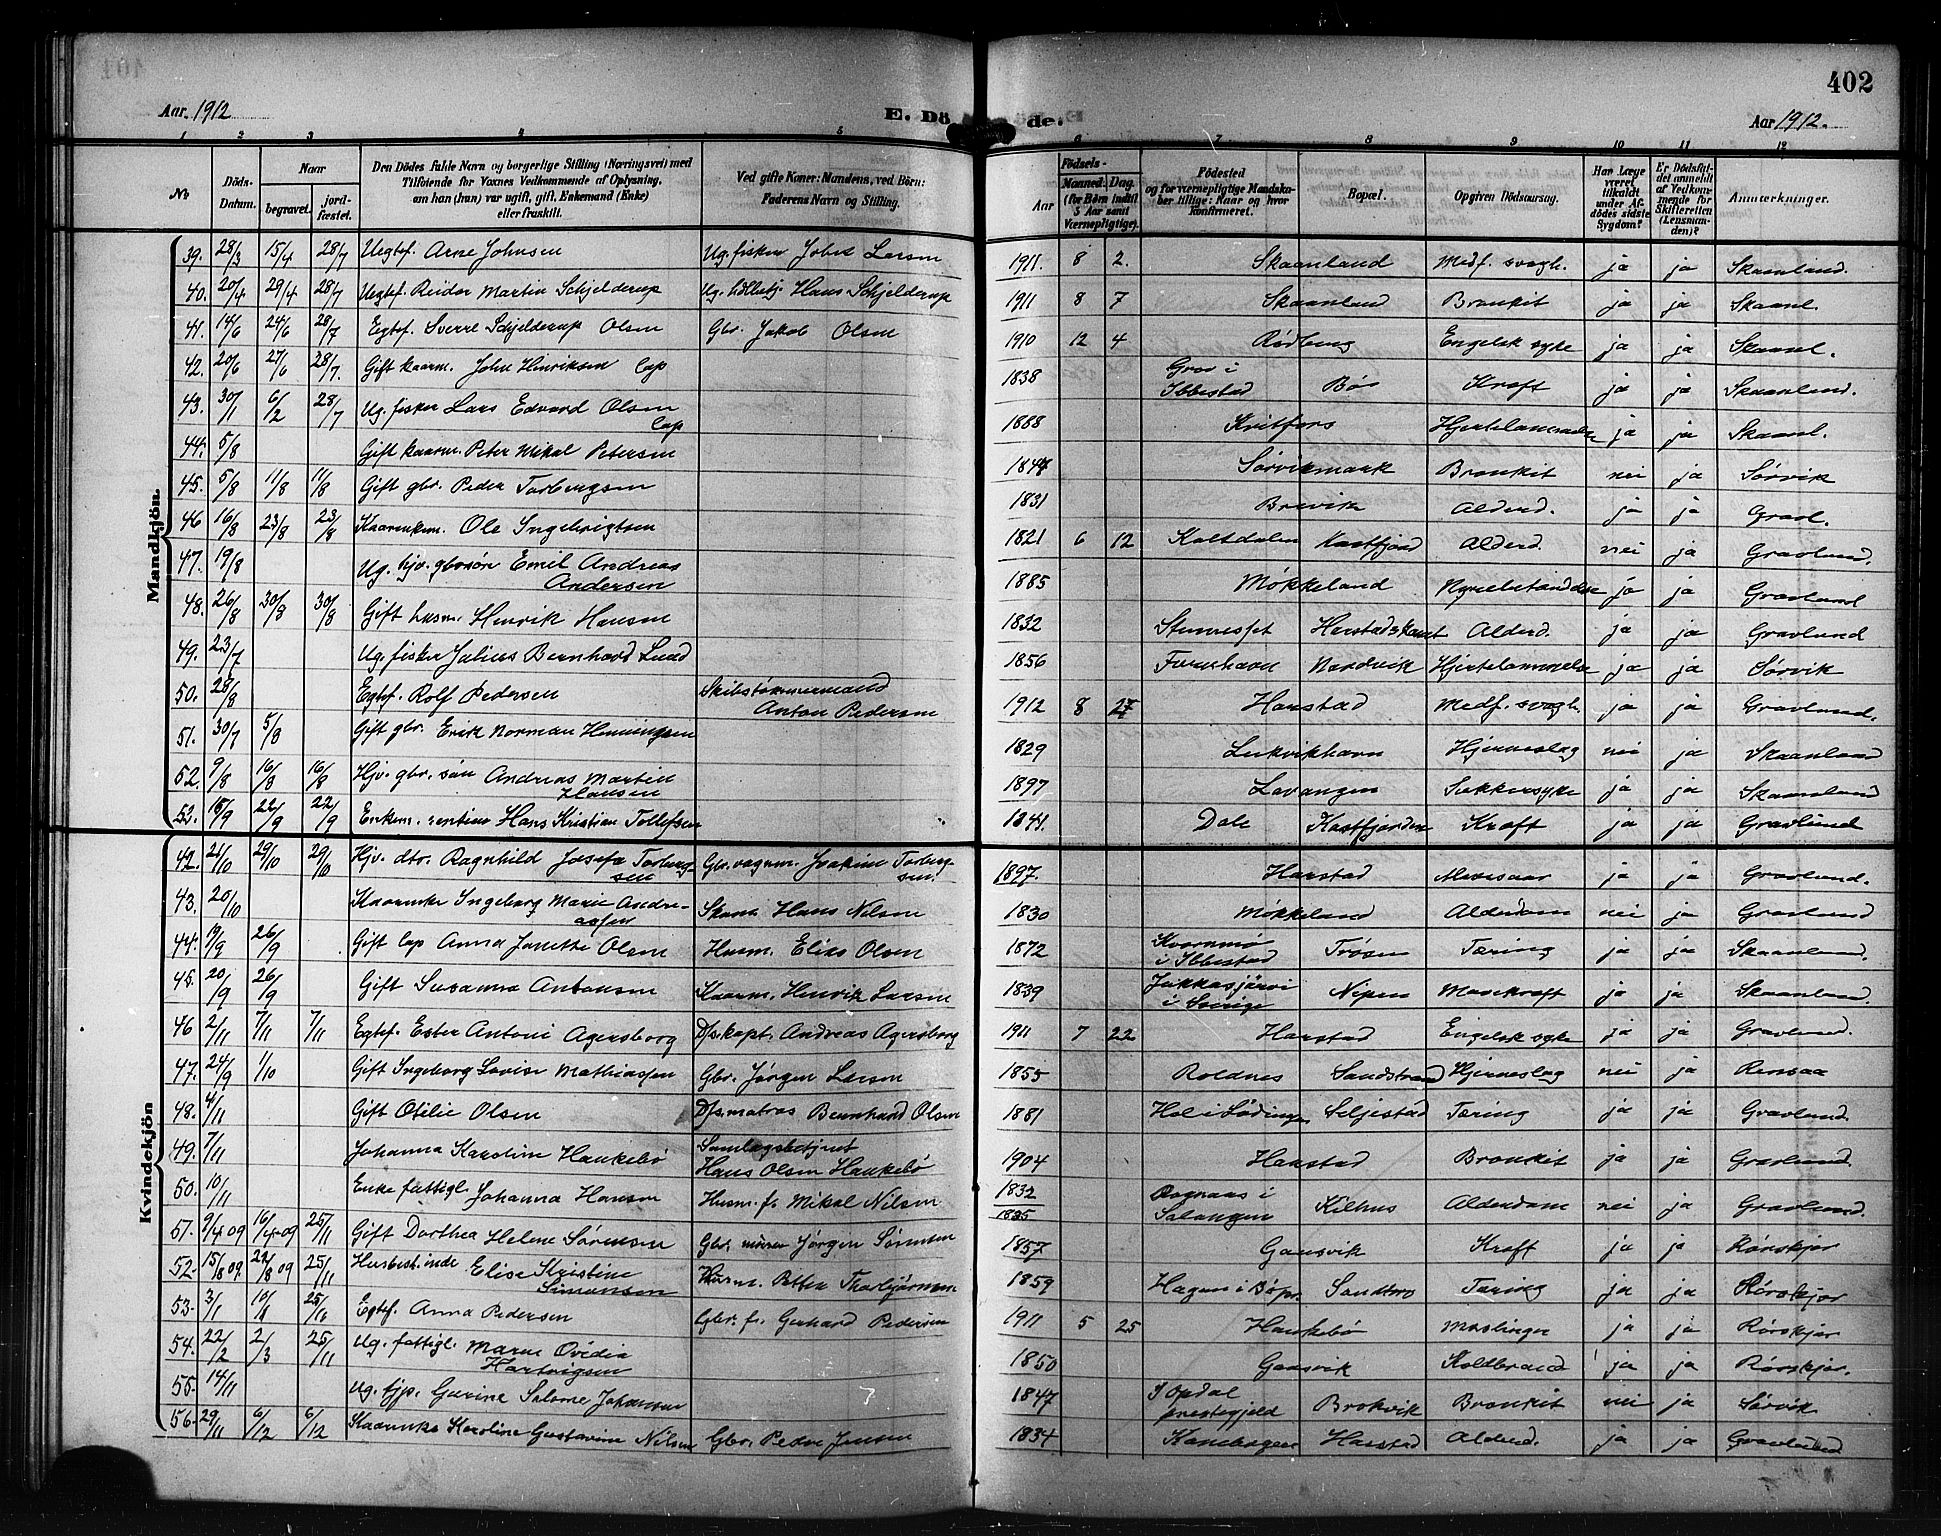 402
Aar 1912
E. Dö
de.
Aar 1912.
1 2 3 4 5 6 7 8 9 10 11 12
No
Döds-Datum.
Naar
begravet.
jordfæstet.
Den Dödes fulde Navn og borgerlige Stilling (Næringsvei) med Tilføiende for Voxnes Vedkommende af Oplysning, om han (hun) var ugift, gift, Enkemand (Enke) eller fraskilt.
Ved gifte Koner: Mandens, ved Börn: Faderens Navn og Stilling.
Aar
Födsels-
Maaned. Dag.
(for Börn indtil 5 Aar samt Værnepligtige).
Födested og for værnepligtige Mandskaber tillige: Naar og hvor konfirmeret.
Bopæl.
Opgiven Dödsaarsag.
Har Læge været tilkaldt under Afdödes sidste Sygdom?
Er Dödsfaldet anmeldt af Vedkommende for Skifteretten (Lensmanden)?
Anmærkninger.
Mandkjön.
39. 28/3 15/4 28/7 Uegtef. Arne Johnsen Ug. fisker Jobet Larsen 1911. 8 2. Skaanland Medf. svagh. ja ja Skaanland.
40. 20/4 29/4 28/7 Uegtef. Reidar Martin Schjelderup Ug. Hans Schjelderup 1911 8 7 Skaanland Bronkit ja ja Skaanl.
41. 14/6 24/6 28/7 Egtef. Sverre Schjelderup Olsen Gbr. Jakob Olsen 1910 12 4 Rødberg Engelsk syke ja ja Skaanl.
42. 20/6 27/6 28/7. Gift kaarm. John Hinriksen Lap 1838 Grov i Ibbestad Bø Kræft ja ja Skaanland.
43. 30/1 6/2 28/7 Ug. fisker Lars Edvard Olsen Lap 1888 Kvitfors Hjertelammelse ja ja Skaanl.
44. 5/8 Gift kaarm. Peter Mikal Petersen 1844 Sørvikmark Bronkit nei ja Sørvik
45. 5/8 11/8 11/8 Gift gbr. Peder Torbergsen 1831 Brevik Alderd. ja ja Gravl.
46 16/8 23/8 23/8 Kaarmkm. Ole Ingebrigtsen 1821 6 12 Kaltdalen Kastfjord Alderd. nei ja Gravlund.
47. 19/8 Ug. hjv. gbrsøn Emil Andreas Andersen 1885 Møkkeland Nyrebetændelse ja ja Gravlund
48. 26/8 30/8 30/8 Gift husm. Henrik Hansen 1832 Stennesset Harstadskaret Alderd. ja ja Gravlund
49. 23/7 Ug. fisker Julius Bernhard Lund 1856 Nordvik Hjertelammelse ja ja Sørvik
50. 28/8 Egtef. Rolf Pedersen Skibstømmermand Anton Pedersen 1912 8 27 Harstad Medf. svagh. ja ja Gravlund.
51. 30/7 5/8 Gift gbr. Erik Norman Henningsen 1829 Lukvikhavn Hjerneslag nei ja Skaanland
52. 9/8 16/8 16/8 Hjv. gbr. søn Andreas Martin Hansen 1897 Lavangen Sukkersyke ja ja Skaanland
53. 15/9 22/9 22/9 Enkem. rentier Hans Kristian Tollefsen 1841. Dale Kastfjorden Kræft ja ja Gravlund
Kvindekjön
42. 21/10 29/10 29/10 Hjv. dtr. Ragnhild Josefa Torbergsen Gbr. vognm. Joakim Torbergsen. 1897. Harstad ja ja Gravlund.
43. 20/10 Kaarenke Ingeborg Marie Andreassen Skom. Hans Nilsen 1830 Møkkeland Alderdom nei ja Gravlund
44. 19/9 26/9 Gift Lap Anna Janette Olsen Husm. Elias Olsen 1872 Kvernmo i Ibbestad Trøsen Tæring ja ja Skaanland.
45. 20/9 26/9 Gift Susanna Antonsen Kaarm. Henrik Larsen 1839 Jukkasjärvi i Sverige Nipen Mavekræft ja ja Skaanland.
46 2/11 7/11 7/11 Egtef. Ester Antoni Agersborg D/s kapt. Andreas Agersborg 1911 7 22 Harstad Engelsk syke ja ja Gravlund.
47. 24/9 1/10 Gift Ingeborg Lovise Mathiassen Gbr. Jørgen Larsen 1855 Roldnes Sandstrand Hjerneslag nei ja Rensaa
48. 4/11 Gift Otilie Olsen D/s matros Bernhard Olsen 1881 Hol i Lødingen Seljestad Tæring ja ja Gravlund.
49. 7/11 Johanna Karoline Haukebø Samlagsbetjent Hans Olsen Haukebø 1904 Harstad Bronkit ja ja Gravlund.
50. 10/11 Enke fattigl. Johanna Hansen Husm. f. Mikal Nilsen 1832 1835 Rognaas i Salangen Kilhus Alderdom nei ja Gravlund.
51. 9/4 09 16/4 09 25/11 Gift Dorthea Helene Sørensen Gbr. murer Jørgen Sørensen 1857 Gansvik Kræft ja ja Rørskjær
52. 15/8 09. 22/8 09 25/11 Husbest.inde Elise Kristine Simonsen Husm. Petter Thorbjørnsen 1859 Hagen i Bø pr. Sandtro Tæring ja ja Rørskjær
53. 3/1 10/1 25/11 Egtef. Anna Pedersen Gbr. f. Gerhard Pedersen 1911 5 25 Haukebø Meslinger ja ja Rørskjær
54. 22/2 2/3 25/11 Ug. fattigl. Maren Ovidia Hartvigsen 1850 Gansvik Koldbrand ja ja Rørskjær.
55. 14/11 Ug. tjp. Gurine Salome Johansen 1847 Opdal prestegjeld Brokvik Bronkit nei ja Sørvik
56. 29/11 6/12 6/12 Kaarenke Karoline Gustavine Nilsen Gbr. Peder Jensen 1834 Kanebogen Harstad Alderd. ja ja Gravlund